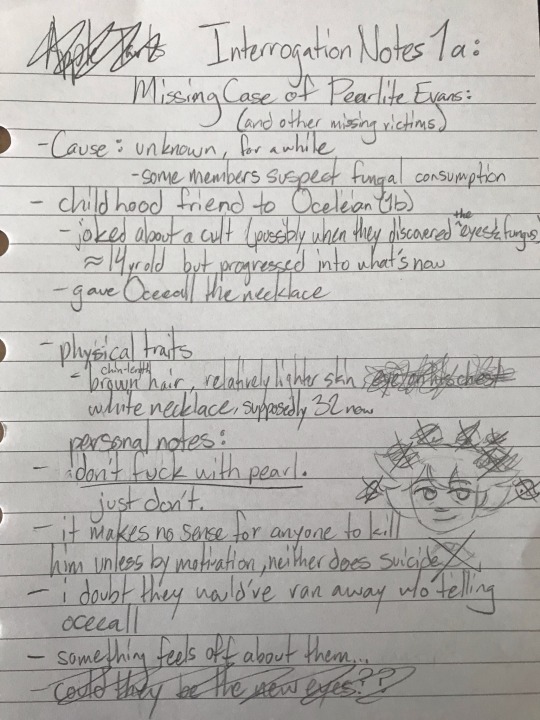 Interrogation Notes 1a:
Missing Case of Pearlite Evans:
(and other missing victims)
- Cause: unknown, for a while
- some members suspect fungal consumption
- childhood friend to Oceleian (1b)
- joked about a cult (possibly when they discovered the eyes & fungus)
≈ 14 yr old but progressed into what's now
- gave Ocecall the necklace
- physical traits
- chin-length brown hair, relatively lighter skin
white necklace, supposedly 32 now
personal notes:
- don't fuck with pearl.
just don't.
- it makes no sense for anyone to kill
him unless by motivation, neither does suicide
- i doubt they would've ran away w/o telling
ocecall
- something feels off about them...
- could they be the new eyes???